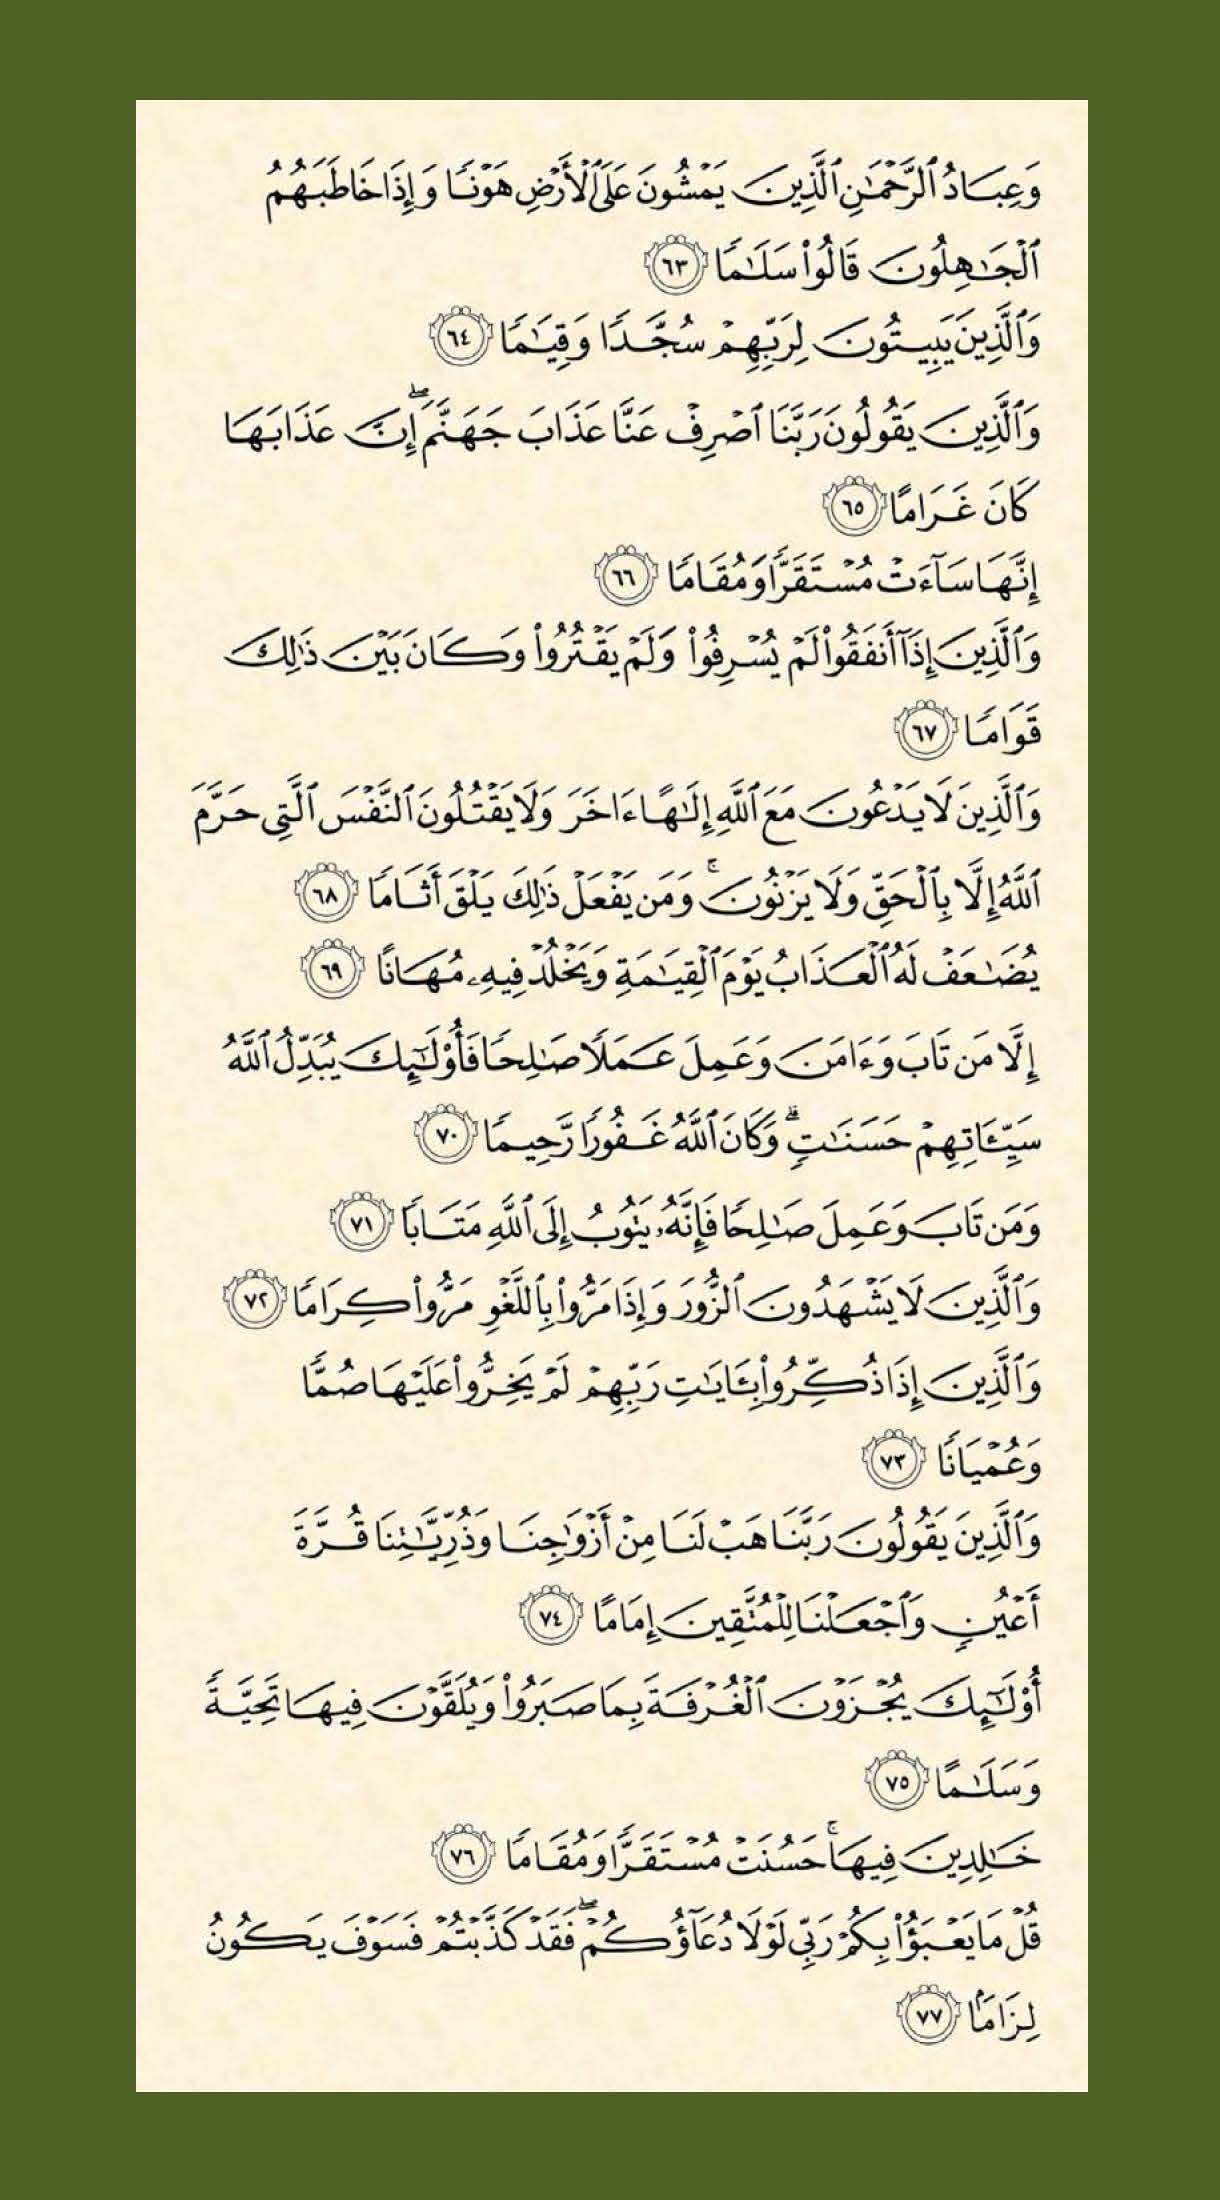 وَعِبَادُ ٱلرَّحْمَٰنِ ٱلَّذِينَ يَمْشُونَ عَلَى ٱلْأَرْضِ هَوْنًا وَإِذَا خَاطَبَهُمُ
ٱلْجَٰهِلُونَ قَالُوا۟ سَلَٰمًا ٦٣
وَٱلَّذِينَ يَبِيتُونَ لِرَبِّهِمْ سُجَّدًا وَقِيَٰمًا ٦٤
وَٱلَّذِينَ يَقُولُونَ رَبَّنَا ٱصْرِفْ عَنَّا عَذَابَ جَهَنَّمَ ۖ إِنَّ عَذَابَهَا
كَانَ غَرَامًا ٦٥
إِنَّهَا سَآءَتْ مُسْتَقَرًّا وَمُقَامًا ٦٦
وَٱلَّذِينَ إِذَآ أَنفَقُوا۟ لَمْ يُسْرِفُوا۟ وَلَمْ يَقْتُرُوا۟ وَكَانَ بَيْنَ ذَٰلِكَ
قَوَامًا ٦٧
وَٱلَّذِينَ لَا يَدْعُونَ مَعَ ٱللَّهِ إِلَٰهًا ءَاخَرَ وَلَا يَقْتُلُونَ ٱلنَّفْسَ ٱلَّتِى حَرَّمَ
ٱللَّهُ إِلَّا بِٱلْحَقِّ وَلَا يَزْنُونَ ۚ وَمَن يَفْعَلْ ذَٰلِكَ يَلْقَ أَثَامًا ٦٨
يُضَٰعَفْ لَهُ ٱلْعَذَابُ يَوْمَ ٱلْقِيَٰمَةِ وَيَخْلُدْ فِيهِۦ مُهَانًا ٦٩
إِلَّا مَن تَابَ وَءَامَنَ وَعَمِلَ عَمَلًا صَٰلِحًا فَأُو۟لَٰٓئِكَ يُبَدِّلُ ٱللَّهُ
سَيِّـَٔاتِهِمْ حَسَنَٰتٍ ۗ وَكَانَ ٱللَّهُ غَفُورًا رَّحِيمًا ٧٠
وَمَن تَابَ وَعَمِلَ صَٰلِحًا فَإِنَّهُۥ يَتُوبُ إِلَى ٱللَّهِ مَتَابًا ٧١
وَٱلَّذِينَ لَا يَشْهَدُونَ ٱلزُّورَ وَإِذَا مَرُّوا۟ بِٱللَّغْوِ مَرُّوا۟ كِرَامًا ٧٢
وَٱلَّذِينَ إِذَا ذُكِّرُوا۟ بِـَٔايَٰتِ رَبِّهِمْ لَمْ يَخِرُّوا۟ عَلَيْهَا صُمًّا
وَعُمْيَانًا ٧٣
وَٱلَّذِينَ يَقُولُونَ رَبَّنَا هَبْ لَنَا مِنْ أَزْوَٰجِنَا وَذُرِّيَّٰتِنَا قُرَّةَ
أَعْيُنٍ وَٱجْعَلْنَا لِلْمُتَّقِينَ إِمَامًا ٧٤
أُو۟لَٰٓئِكَ يُجْزَوْنَ ٱلْغُرْفَةَ بِمَا صَبَرُوا۟ وَيُلَقَّوْنَ فِيهَا تَحِيَّةً
وَسَلَٰمًا ٧٥
خَٰلِدِينَ فِيهَا ۚ حَسُنَتْ مُسْتَقَرًّا وَمُقَامًا ٧٦
قُلْ مَا يَعْبَؤُا۟ بِكُمْ رَبِّى لَوْلَا دُعَآؤُكُمْ ۖ فَقَدْ كَذَّبْتُمْ فَسَوْفَ يَكُونُ
لِزَامًۢا ٧٧